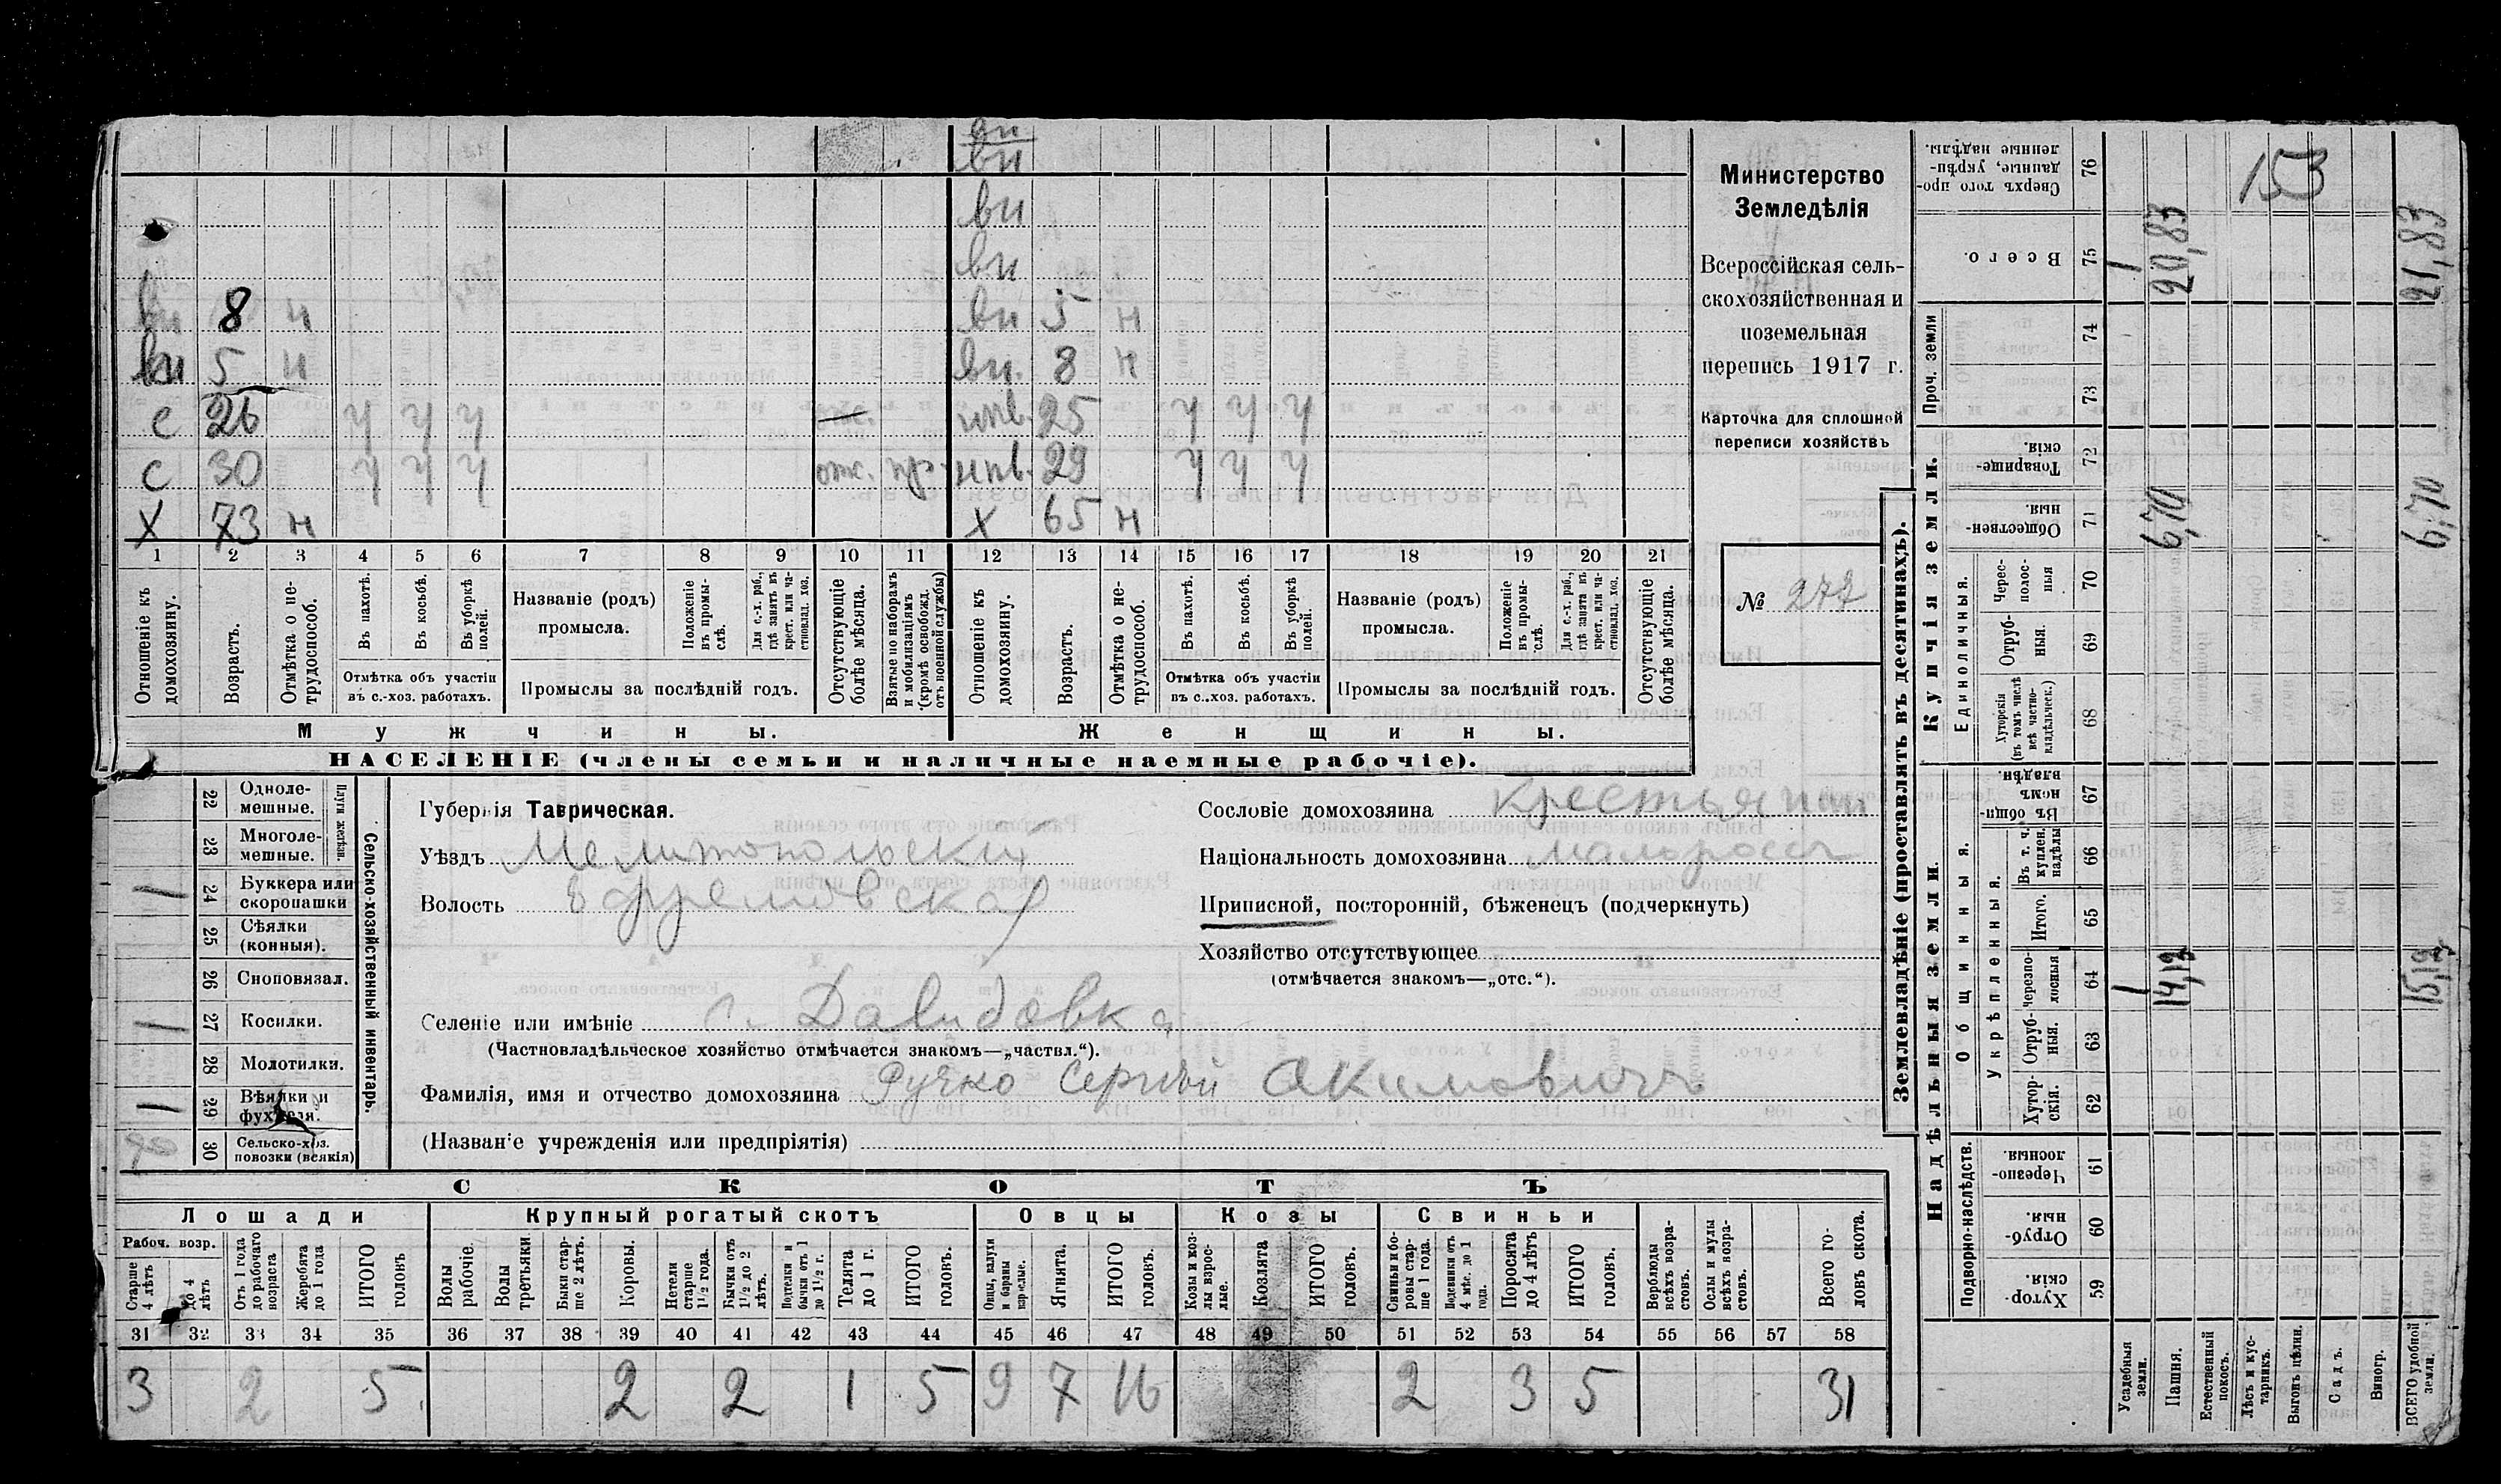 ви
ви
ви
ви
ви 8 н ви 5 н
ви 5 н ви. 8 н
с 26 ч ч ч нпв. 25 ч ч ч
с 30 ч ч ч отс. нпв. 29 ч ч ч
Х 73 н Х 65 н
1 2 3 4 5 6 7 8 9 10 11 12 13 14 15 16 17 18 19 20 21
Отношеніе къ домохозяину.
Возрастъ.
Отмѣтка о не-трудоспособ.
Въ пахотѣ.
Въ косьбѣ.
Въ уборкѣ полей.
Отмѣтка объ участіи
въ с.-хоз. работахъ.
Названіе (родъ)
промысла.
Положеніе въ промы-слѣ.
Для с.-х. раб., гдѣ занятъ въ крест. или ча-стновлад. хоз.
Промыслы за послѣдній годъ.
Отсутствующіе болѣе мѣсяца.
Взятые по наборамъ и мобилизаціямъ (кромѣ освобожд. отъ военной службы)
Отношеніе къ домохозяину.
Возрастъ.
Отмѣтка о не-трудоспособ.
Въ пахотѣ.
Въ косьбѣ.
Въ уборкѣ полей.
Отмѣтка объ участіи
въ с.-хоз. работахъ.
Названіе (родъ)
промысла.
Положеніе въ промы-слѣ.
Для с.-х. раб., гдѣ занята въ крест. или ча-стновлад. хоз.
Промыслы за послѣдній годъ.
Отсутствующіе болѣе мѣсяца.
Мужчины. Женщины.
НАСЕЛЕНІЕ (члены семьи и наличные наемные рабочіе).
Министерство
Земледѣлія
Всероссійская сель-
скохозяйственная и
поземельная
перепись 1917 г.
Карточка для сплошной
переписи хозяйствъ
№ 277
Плуги желѣзн.
22 Одноле-
мешные.
23 Многоле-
мешные.
1 24 Буккера или
скоропашки
25 Сѣялки
(конныя).
26 Сноповязал.
1 27 Косилки.
28 Молотилки.
1 29 Вѣялки и
фухтеля.
30 Сельско-хоз.
повозки (всякія)
Сельско-хозяйственный инвентарь.
Губернія Таврическая.
Уѣздъ Мелитопольскій
Волость Ефремовская
Селеніе или имѣніе с. Давидовка
(Частновладѣльческое хозяйство отмѣчается знакомъ—„частвл.“).
Фамилія, имя и отчество домохозяина Ручко Сергѣй Акимовичъ
(Названіе учрежденія или предпріятія)
Сословіе домохозяина крестьянин
Національность домохозяина малороссъ
Приписной, посторонній, бѣженецъ (подчеркнуть)
Хозяйство отсутствующее
(отмѣчается знакомъ—„отс.“).
СКОТЪ
Лошади Крупный рогатый скотъ Овцы Козы Свиньи
Рабоч. возр.
Старше 4 лѣтъ
до 4 лѣтъ
Отъ 1 года до рабочаго возраста
Жеребята до 1 года
ИТОГО головъ
Волы рабочіе.
Волы третьяки.
Быки стар-ше 2 лѣтъ.
Коровы.
Нетели старше 1½ года.
Бычки отъ 1½ до 2 лѣтъ.
Подтелки и бычки отъ 1 до 1½ г.
Телята до 1 г.
ИТОГО головъ.
Овцы, валухи и бараны взрослые.
Ягнята.
ИТОГО головъ.
Козы и коз-лы взрос-лые.
Козлята
ИТОГО головъ.
Свиньи и бо-ровы стар-ше 1 года.
Подсвинки отъ 4 мѣс. до 1 года.
Поросята до 4 лѣтъ
ИТОГО головъ.
Верблюды всѣхъ возра-стовъ.
Ослы и мулы всѣхъ возра-стовъ.
Всего го-ловъ скота.
31 32 33 34 35 36 37 38 39 40 41 42 43 44 45 46 47 48 49 50 51 52 53 54 55 56 57 58
3 2 5 2 2 1 5 9 7 16 2 3 5 31
Землевладѣніе (проставлять въ десятинахъ).
Надѣльныя земли. Купчія земли.
Проч. земли
Подворно-наслѣдств.
Общинныя.
Укрѣпленныя.
Единоличныя.
Хутор-скія. 59
Отруб-ныя. 60
Черезпо-лосныя. 61
Хутор-скія. 62
Отруб-ныя. 63
Черезпо-лосныя 64
Итого. 65
Въ т. ч. куплен. надѣлы 66
Въ общин-номъ владѣн. 67
Хуторскія (въ томъ числѣ всѣ частно-владѣльческ.) 68
Отруб-ныя. 69
Черес-полос-ныя 70
Обществен-ныя. 71
Товарище-скія. 72
73
74
Всего. 75
Сверхъ того про-данные, укрѣп-ленные надѣлы. 76
Усадебныя земли. 1 1
Пашня. 14,13 6,70 20,83
Естественный покосъ.
Лѣсъ и кус-тарникъ.
Выгонъ цѣлин.
Садъ.
Виногр.
ВСЕГО удобной земли. 15,13 6,70 21,83
153